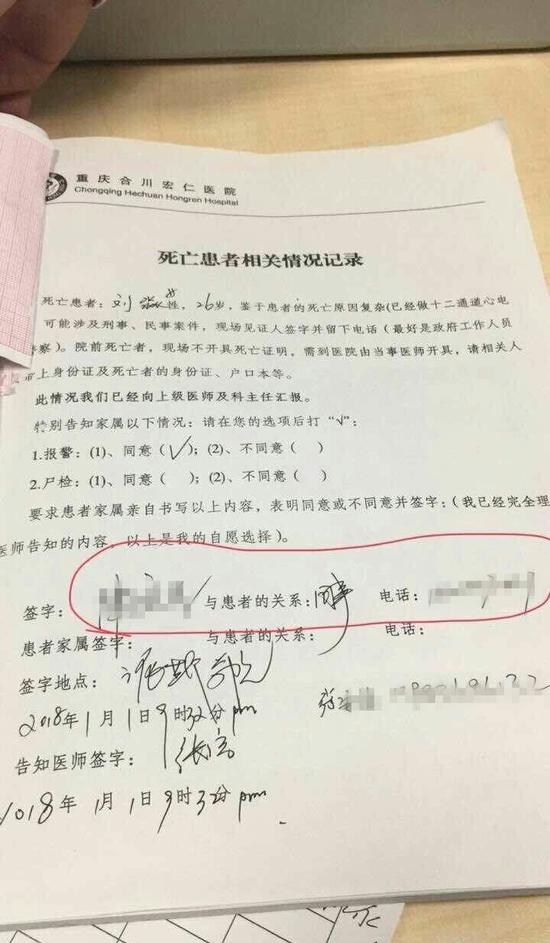 重庆合川宏仁医院
Chongqing Hechuan Hongren Hospital
死亡患者相关情况记录
死亡患者：刘 女性，26岁，鉴于患者的死亡原因复杂(已经做十二通道心电
可能涉及刑事、民事案件，现场见证人签字并留下电话（最好是政府工作人员
警察）。院前死亡者，现场不开具死亡证明，需到医院由当事医师开具，请相关人
带上身份证及死亡者的身份证、户口本等。
此情况我们已经向上级医师及科主任汇报。
特别告知家属以下情况：请在您的选项后打“√”：
1.报警：(1)、同意（√）；(2)、不同意（ ）
2.尸检：(1)、同意（ ）；(2)、不同意（ ）
要求患者家属亲自书写以上内容，表明同意或不同意并签字：（我已经完全理
医师告知的内容，以上是我的自愿选择）。
签字： 与患者的关系：同事 电话：
患者家属签字： 与患者的关系： 电话：
签字地点：
2018年1月1日9时32分pm
告知医师签字：
2018年1月1日9时32分pm